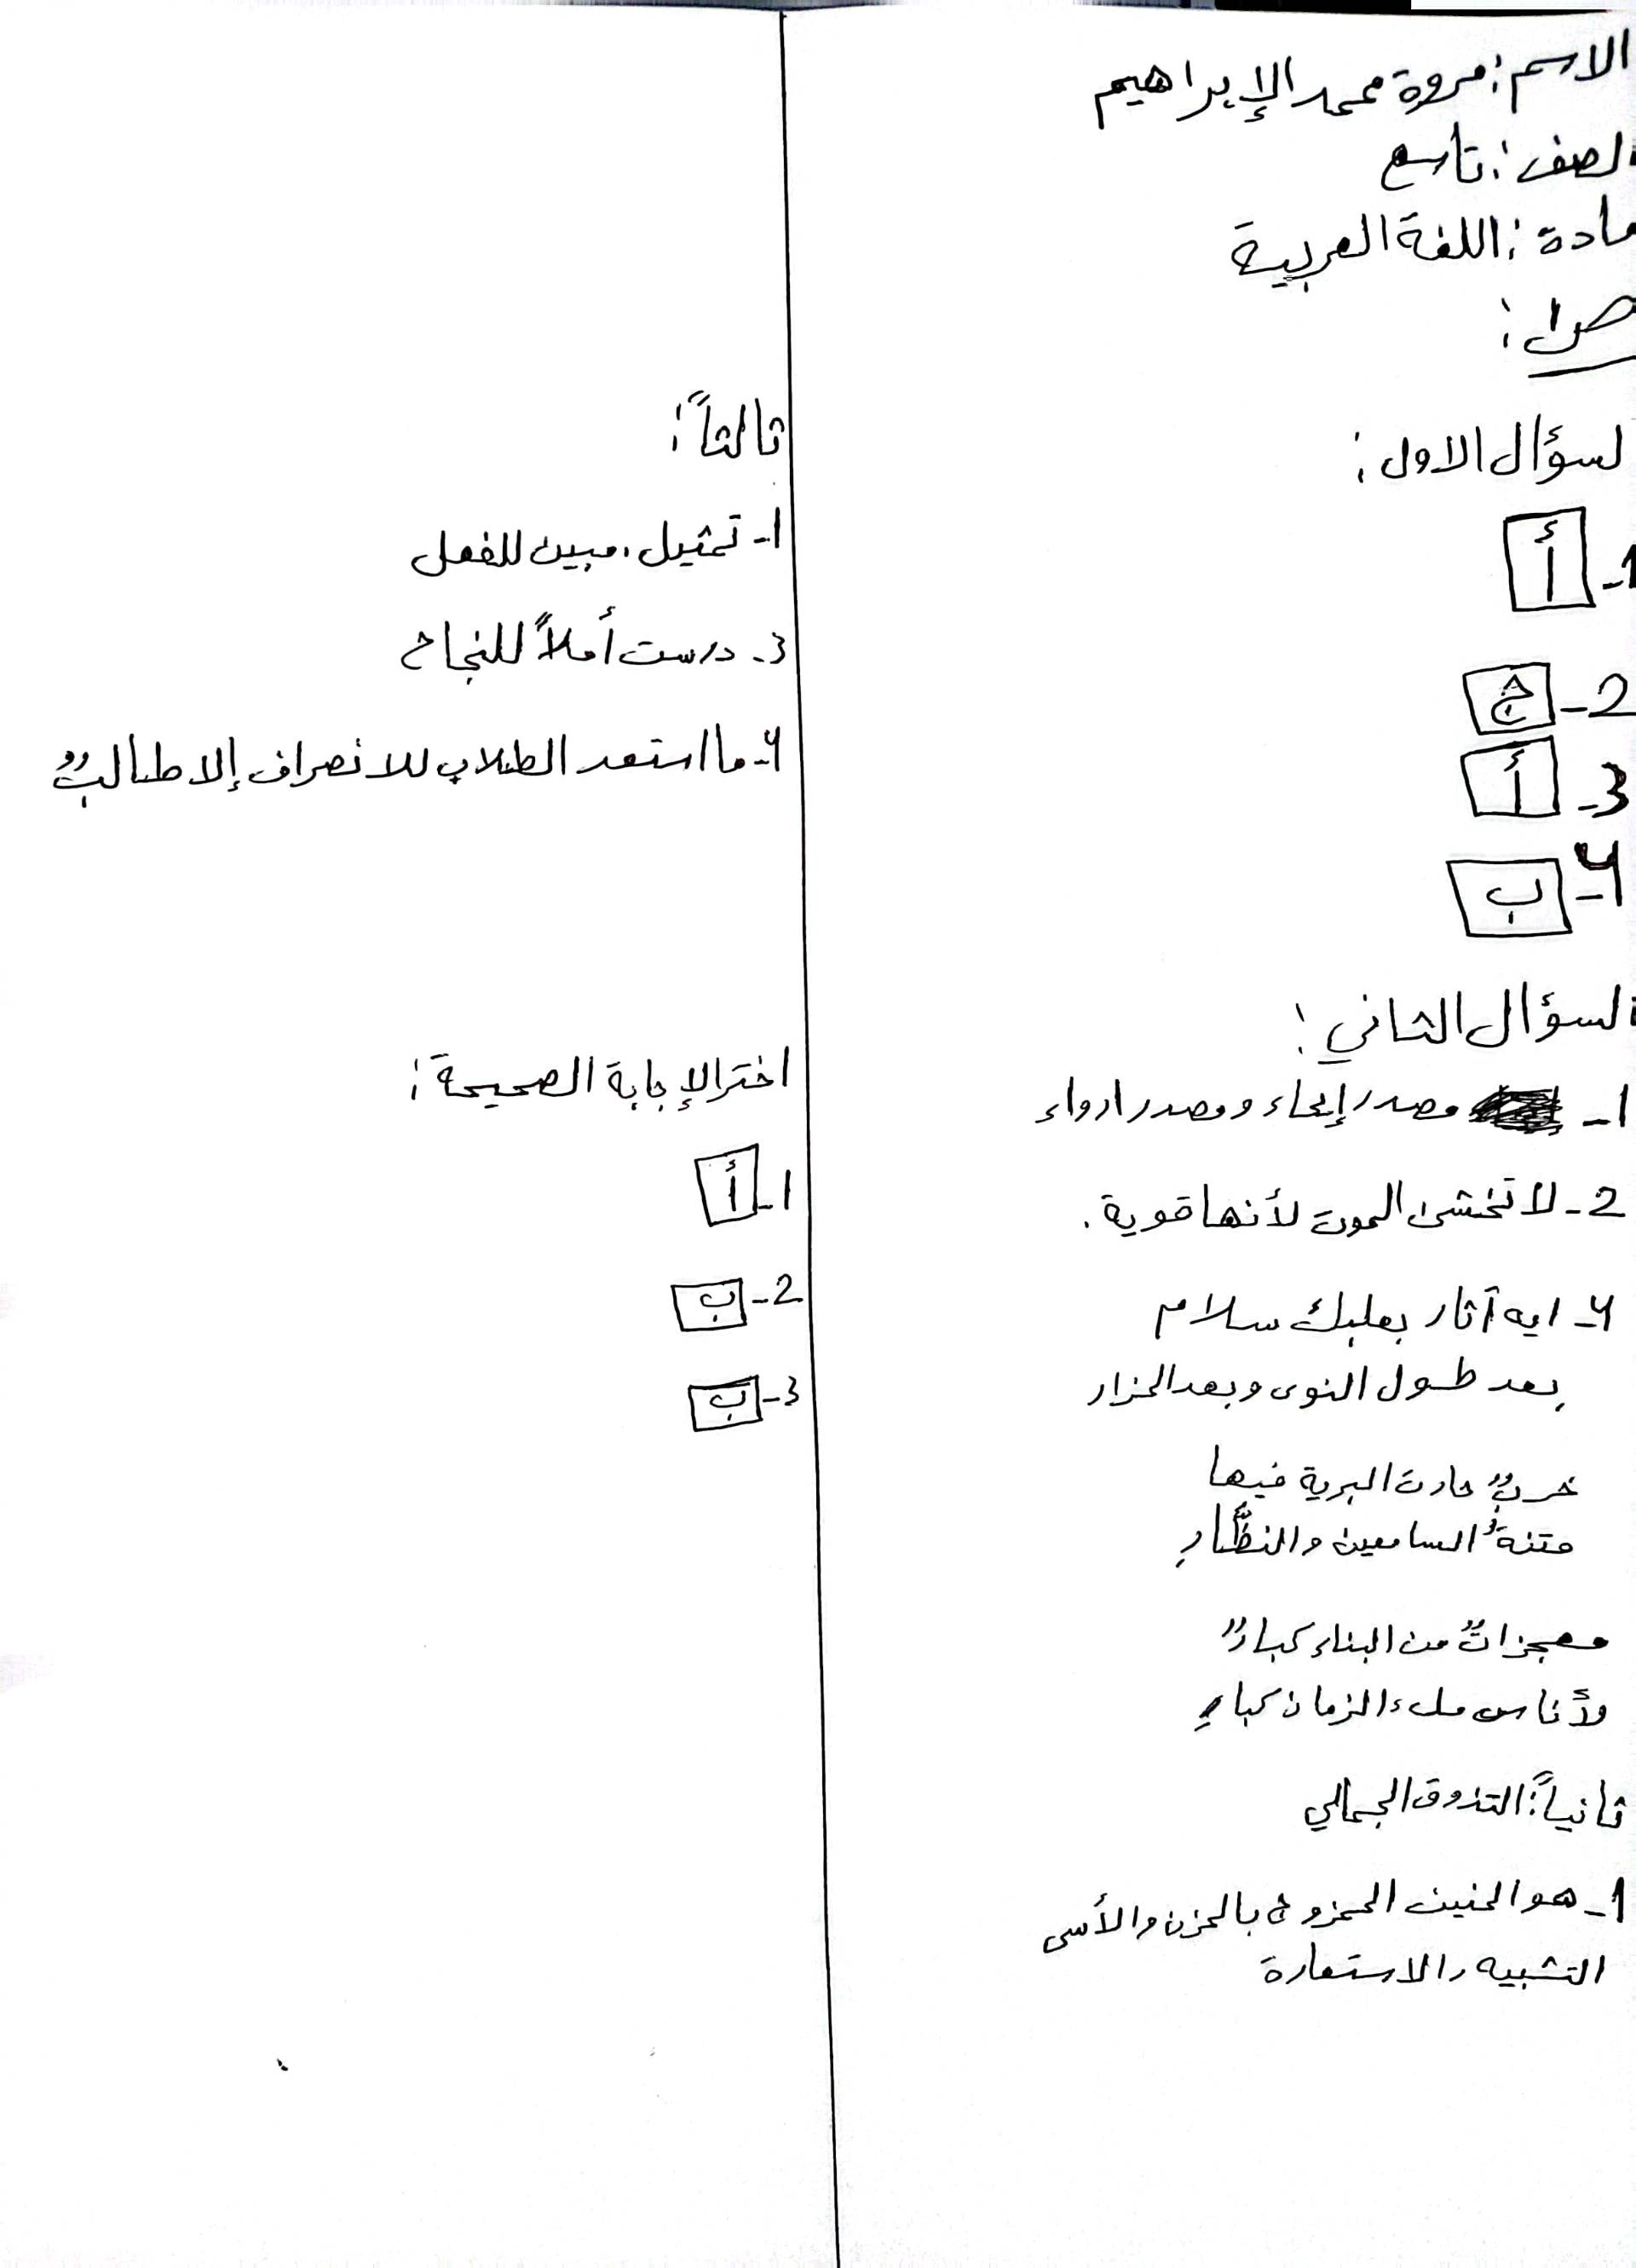 الاسم: مروة محمد الإبراهيم
لصف: تاسع
مادة: اللغة العربية
لسؤال الاول:
1- أ
2- ج
3- أ
4- ب
لسؤال الثاني:
1- مصدر إيحاء ومصدر ارواء
2- لا تخشى الموت لأنها قوية.
4- ايه آثار بعلبك سلام
بعد طول النوى وبعد المزار
خربٌ حارت البرية فيها
فتنةُ السامعين والنظَّارِ
معجزاتٌ من البناء كبارٌ
لأناس ملء الزمان كبارِ
ثانياً: التذوق الجمالي
1- هو الحنين الممزوج بالحزن والأسى
التشبيه والاستعارة
ثالثاً:
1- تمثيل، مبين للفعل
3- درست أملاً للنجاح
4- ما استعد الطلاب للانصراف إلا طالبٌ
اختر الإجابة الصحيحة:
1- أ
2- ب
3- ب